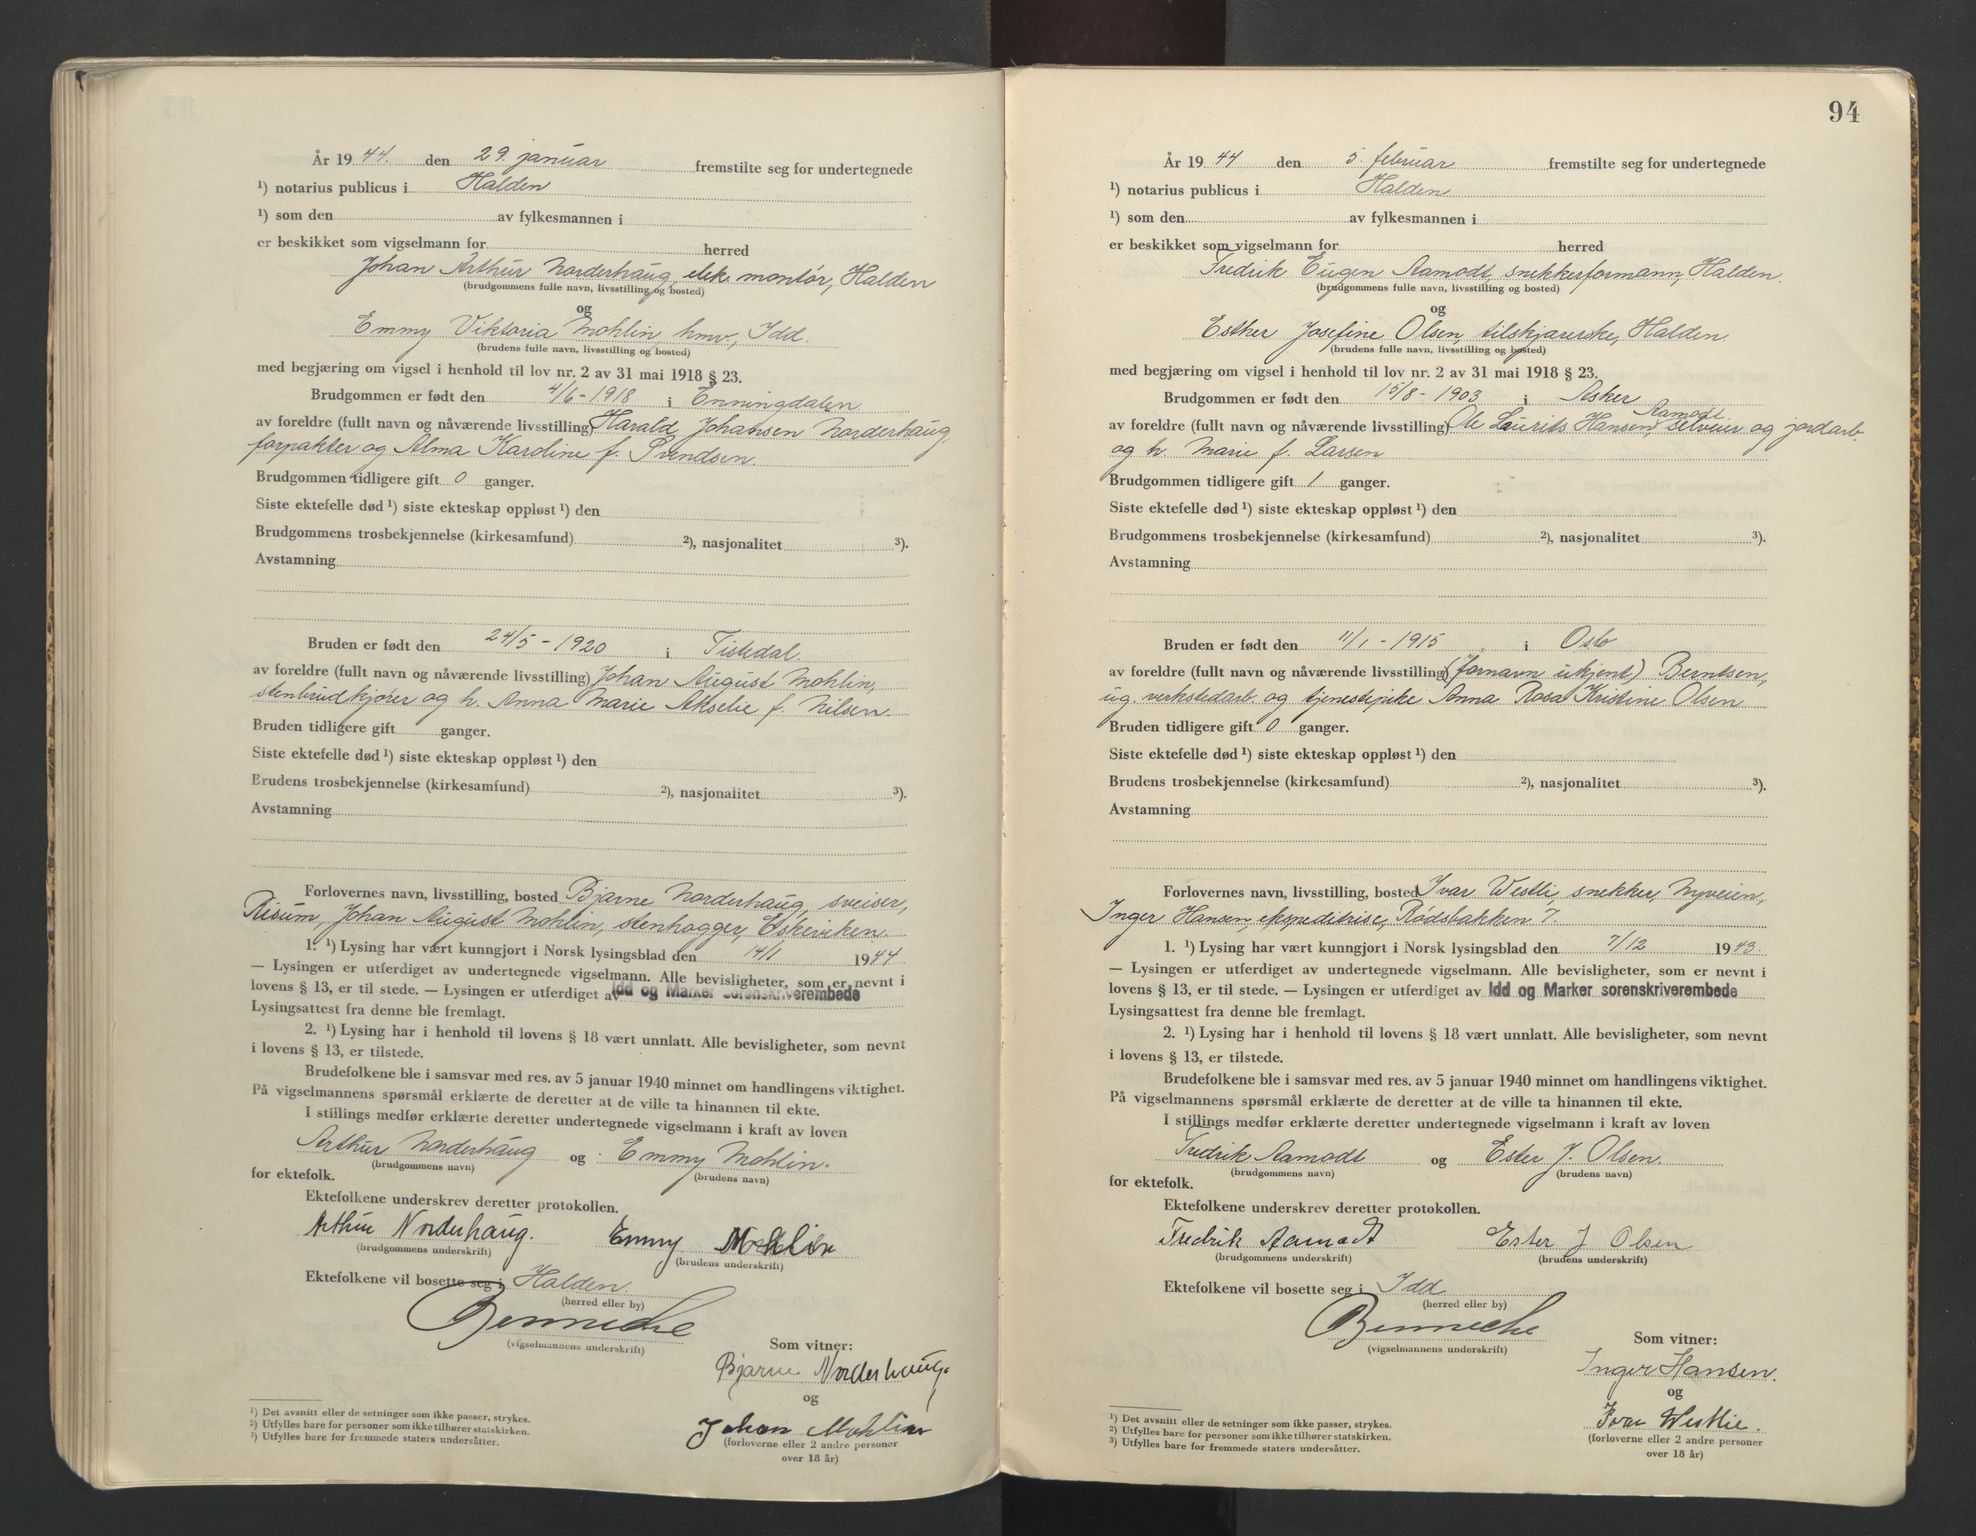 År 1944. den 29. januar fremstilte seg for undertegnede
¹) notarius publicus i Halden
¹) som den av fylkesmannen i
er beskikket som vigselmann for herred
Johan Arthur Norderhaug, elek. montör, Halden
(brudgommens fulle navn, livsstilling og bosted)
og
Emmy Viktoria Mohlin, hmv., Idd.
(brudens fulle navn, livsstilling og bosted)
med begjæring om vigsel i henhold til lov nr. 2 av 31 mai 1918 § 23.
Brudgommen er født den 4/6 - 1918 i Enningdalen
av foreldre (fullt navn og nåværende livsstilling) Harald Johansen Norderhaug
forpakter og Alma Karoline f. Svendsen.
Brudgommen tidligere gift 0 ganger.
Siste ektefelle død ¹) siste ekteskap oppløst ¹) den
Brudgommens trosbekjennelse (kirkesamfund) ²), nasjonalitet ³).
Avstamning
Bruden er født den 24/5 - 1920 i Tistedal.
av foreldre (fullt navn og nåværende livsstilling) Johan August Mohlin,
stenbruddkjører og h. Anna Marie Akselie f. Nilsen.
Bruden tidligere gift ganger.
Siste ektefelle død ¹) siste ekteskap oppløst ¹) den
Brudens trosbekjennelse (kirkesamfund) ²), nasjonalitet ³).
Avstamning
Forlovernes navn, livsstilling, bosted Bjarne Norderhaug, sveiser,
Risum, Johan August Mohlin, stenhogger, Eskeviken.
1. ¹) Lysing har vært kunngjort i Norsk lysingsblad den 14/1 1944
— Lysingen er utferdiget av undertegnede vigselmann. Alle bevisligheter, som er nevnt i
lovens § 13, er til stede. — Lysingen er utferdiget av Idd og Marker sorenskriverembede
Lysingsattest fra denne ble fremlagt.
2. ¹) Lysing har i henhold til lovens § 18 vært unnlatt. Alle bevisligheter, som nevnt
i lovens § 13, er tilstede.
Brudefolkene ble i samsvar med res. av 5 januar 1940 minnet om handlingens viktighet.
På vigselmannens spørsmål erklærte de deretter at de ville ta hinannen til ekte.
I stillings medfør erklærte deretter undertegnede vigselmann i kraft av loven
Arthur Norderhaug og Emmy Mohlin.
(brudgommens navn) (brudens navn)
for ektefolk.
Ektefolkene underskrev deretter protokollen.
Arthur Norderhaug. Emmy Mohlin
(brudgommens underskrift) (brudens underskrift)
Ektefolkene vil bosette seg i Halden.
(herred eller by)
Bennecke
(vigselmannens underskrift)
Som vitner:
Bjarne Norderhaug.
og
Johan Mohlin
(forloverne eller 2 andre personer
over 18 år)
¹) Det avsnitt eller de setninger som ikke passer, strykes.
²) Utfylles bare for personer som ikke tilhører statskirken.
³) Utfylles bare for fremmede staters undersåtter.
94
År 1944 den 5. februar fremstilte seg for undertegnede
¹) notarius publicus i Halden
¹) som den av fylkesmannen i
er beskikket som vigselmann for herred
Fredrik Eugen Aamodt, snekkerformann, Halden.
(brudgommens fulle navn, livsstilling og bosted)
og
Esther Josefine Olsen, tilskjærerske, Halden.
(brudens fulle navn, livsstilling og bosted)
med begjæring om vigsel i henhold til lov nr. 2 av 31 mai 1918 § 23.
Brudgommen er født den 15/8 - 1903 i Asker
Aamodt
av foreldre (fullt navn og nåværende livsstilling) Ole Laurits Hansen, selveier og jordarb.
og h. Marie f. Larsen
Brudgommen tidligere gift 1 ganger.
Siste ektefelle død ¹) siste ekteskap oppløst ¹) den
Brudgommens trosbekjennelse (kirkesamfund) ²), nasjonalitet ³).
Avstamning
Bruden er født den 11/1 - 1915 i Oslo
av foreldre (fullt navn og nåværende livsstilling) (fornavn ukjent) Berntsen,
ug. verkstedarb. og tjenestepike Anna Rosa Kristine Olsen
Bruden tidligere gift 0 ganger.
Siste ektefelle død ¹) siste ekteskap oppløst ¹) den
Brudens trosbekjennelse (kirkesamfund) ²), nasjonalitet ³).
Avstamning
Forlovernes navn, livsstilling, bosted Ivar Westli, snekker, Nyveien,
Inger Hansen, ekspeditrise, Rödsbakken 7.
1. ¹) Lysing har vært kunngjort i Norsk lysingsblad den 7/12 1943.
— Lysingen er utferdiget av undertegnede vigselmann. Alle bevisligheter, som er nevnt i
lovens § 13, er til stede. — Lysingen er utferdiget av Idd og Marker sorenskriverembede
Lysingsattest fra denne ble fremlagt.
2. ¹) Lysing har i henhold til lovens § 18 vært unnlatt. Alle bevisligheter, som nevnt
i lovens § 13, er tilstede.
Brudefolkene ble i samsvar med res. av 5 januar 1940 minnet om handlingens viktighet.
På vigselmannens spørsmål erklærte de deretter at de ville ta hinannen til ekte.
I stillings medfør erklærte deretter undertegnede vigselmann i kraft av loven
Fredrik Aamodt og Ester J. Olsen.
(brudgommens navn) (brudens navn)
for ektefolk.
Ektefolkene underskrev deretter protokollen.
Fredrik Aamodt Ester J Olsen
(brudgommens underskrift) (brudens underskrift)
Ektefolkene vil bosette seg i Idd
(herred eller by)
Bennecke
(vigselmannens underskrift)
Som vitner:
Inger Hansen.
og
Ivar Westlie.
(forloverne eller 2 andre personer
over 18 år)
¹) Det avsnitt eller de setninger som ikke passer, strykes.
²) Utfylles bare for personer som ikke tilhører statskirken.
³) Utfylles bare for fremmede staters undersåtter.